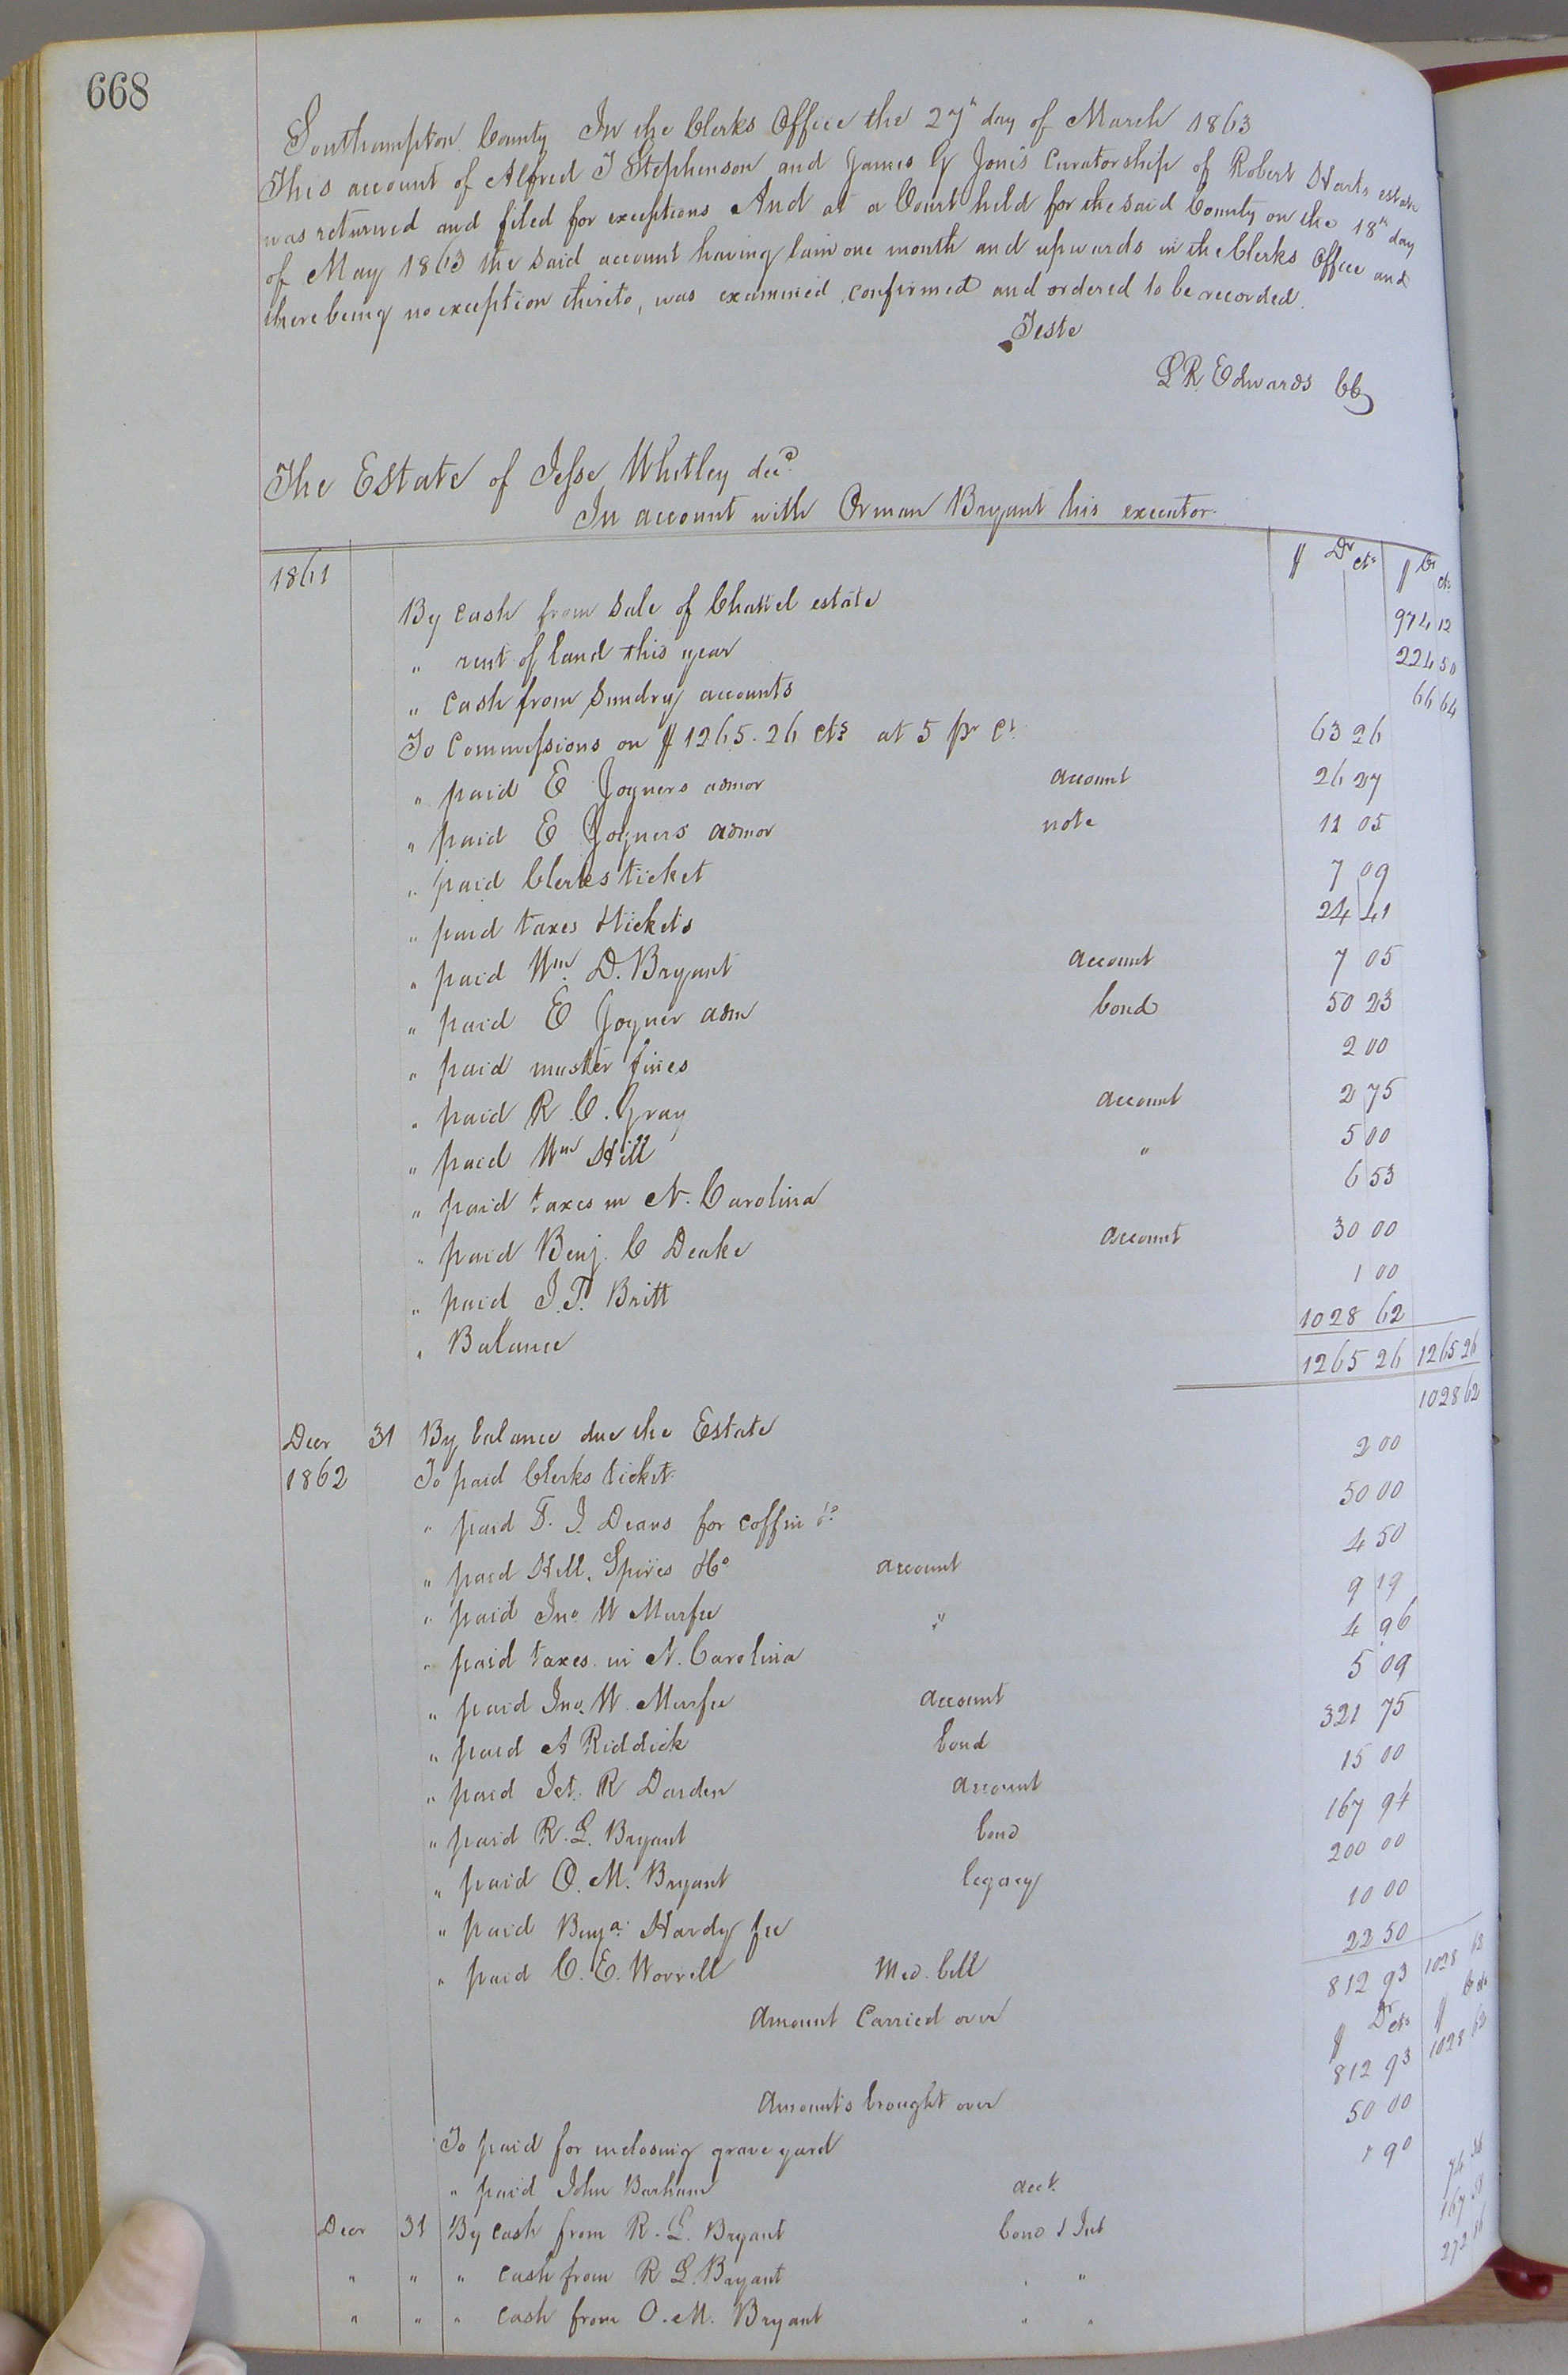 668
Southampton County In the Clerks Office the 27th day of March 1863
This account of Alfred J Stephenson and James G Jones Curatorship of Robert Harts estate
was returned and filed for exceptions And at a Court held for the said County on the 18th day
of May 1863 the said account having lain one month and upwards in the Clerks Office and
there being no exception thereto, was examined, confirmed and ordered to be recorded.
Teste
L R Edwards CC
The Estate of Jesse Whitley decd.
In account with Orman Bryant his executor.
1861 $ Dr cts $ Cr cts
By cash from Sale of Chattel estate 974 12
" rent of land this year 224 50
" Cash from Sundry accounts 66 64
To Commissions on $1265.26 cts at 5 pr ct. 63 26
" paid E Joyners admor account 26 27
" paid E Joyners admor note 11 05
" paid Clerks ticket 7 09
" paid taxes & tickets 24 41
" paid Wm D. Bryant account 7 05
" paid E Joyner adm bond 50 23
" paid muster fines 2 00
" paid R. C. Gray account 2 75
" paid Wm Hill " 5 00
" paid taxes in N. Carolina 6 53
" paid Benj. C Deake account 30 00
" paid J. T. Britt 1 00
" Balance 1028 62
1265 26 1265 26
Decr 31 By balance due the Estate 1028 62
1862 To paid Clerks ticket. 2 00
" paid T. J. Deans for coffin &c 50 00
" paid Hill, Spires & Co account 4 50
" paid Jno. W Murfee " 9 19
" paid taxes in N. Carolina 4 96
" paid Jno. W. Murfee account 5 09
" paid A Riddick bond 321 75
" paid Jet. R Darden account 15 00
" paid R. L. Bryant bond 167 94
" paid O. M. Bryant legacy 200 00
" paid Benja. Hardy fee 10 00
" paid C. E. Worrell Med. bill 22 50
Amount Carried over 812 93 1028 62
$ Dr cts $ Cr cts
Amounts brought over 812 93 1028 62
To paid for inclosing grave yard 50 00
" paid John Barham acct. 90
Decr 31 By cash from R. L. Bryant bond & Int 74
" " " cash from R L. Bryant " " 167 58
" " " cash from O. M. Bryant " " 272